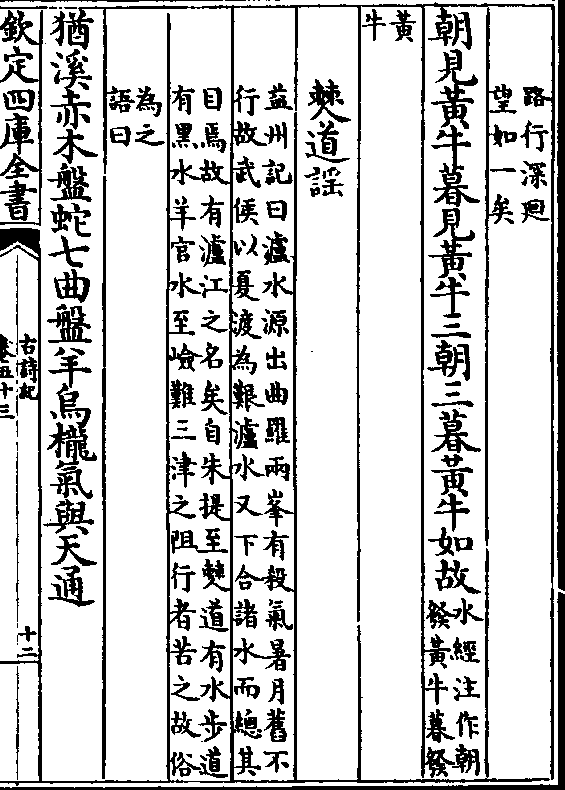 路行深廻
望如一矣
朝見黃牛暮見黃牛三朝三暮黃牛如故
水經注作朝
發黃牛暮發
黃
牛
僰道謠
益州記曰瀘水源出曲羅兩峯有殺氣暑月舊不
行故武侯以夏渡為艱瀘水又下合諸水而總其
目焉故有瀘江之名矣自朱提至僰道有水步道
有黑水羊官水至嶮難三津之阻行者苦之故俗
為之
語曰
猶溪赤木盤蛇七曲盤羊烏櫳氣與天通
欽定四庫全書
古詩紀
卷五十三
十二